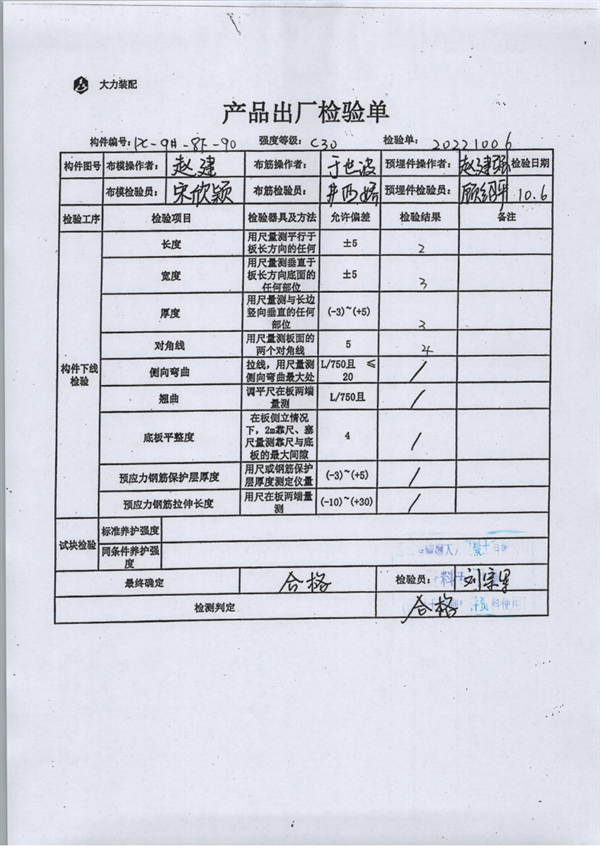 大力装配
产品出厂检验单
构件编号: PC-9#-8F-90 强度等级: C30 检验单: 20221006
构件图号 布模操作者: 赵建 布筋操作者: 于世波 预埋件操作者: 赵建强 检验日期
布模检验员: 宋欣颖 布筋检验员: 预埋件检验员: 10.6
检验工序 检验项目 检验器具及方法 允许偏差 检验结果 备注
构件下线检验
长度 用尺量测平行于板长方向的任何 ±5 2
宽度 用尺量测垂直于板长方向底面的任何部位 ±5 3
厚度 用尺量测与长边竖向垂直的任何部位 (-3)~(+5) 3
对角线 用尺量测板面的两个对角线 5 4
侧向弯曲 拉线，用尺量测侧向弯曲最大处 L/750且 ≤20 /
翘曲 调平尺在板两端量测 L/750且 /
底板平整度 在板侧立情况下，2m靠尺、塞尺量测靠尺与底板的最大间隙 4 /
预应力钢筋保护层厚度 用尺或钢筋保护层厚度测定仪量 (-3)~(+5) /
预应力钢筋拉伸长度 用尺在板两端量测 (-10)~(+30) /
试块检验 标准养护强度
同条件养护强度
最终确定 合格 检验员:
检测判定 合格